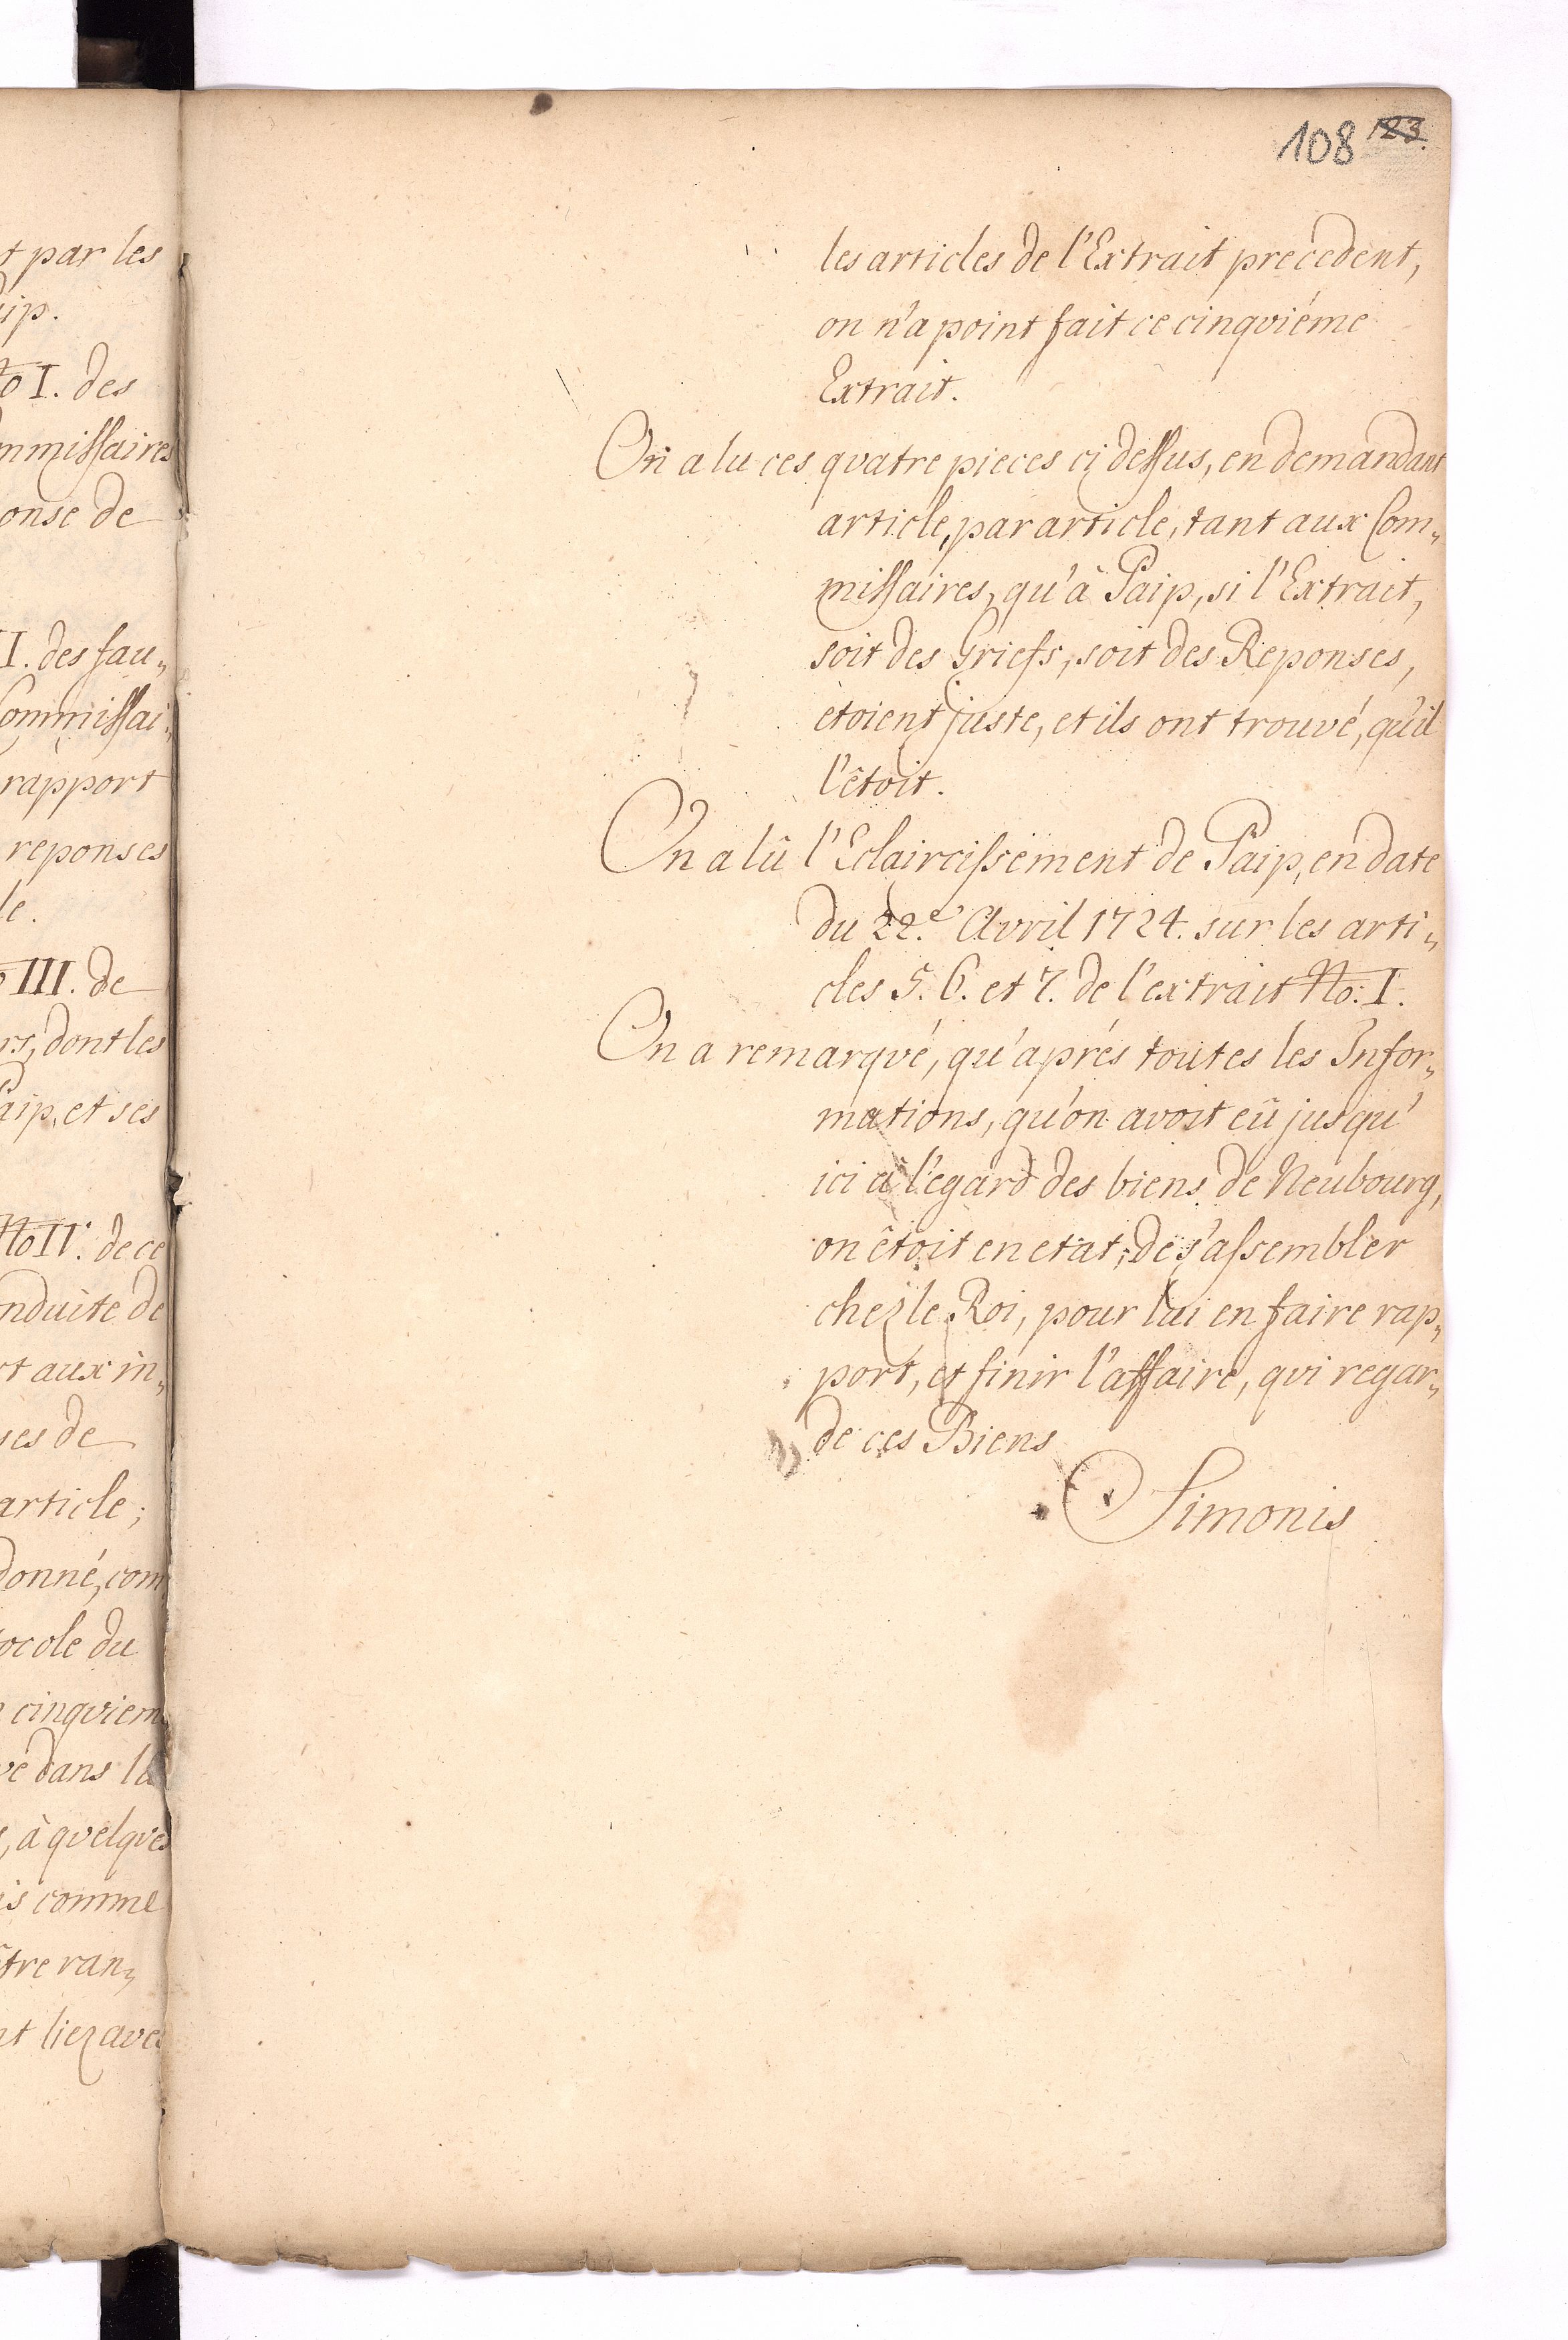 t par les
ip.
No I. des
mmissaires
onse de
I. des fau„
Commissai„
rapport
reponses
le.
III. de
rs, dont les
aip, et ses
No IV. de ce
nduite de
rt aux in„
ses de
article;
donné, com
ocole du
cinqviem
ve dans la
, à qvelqves
is comme
tre ran„
nt liez avec
108 123.
les articles de l'Extrait precedent,
on n'a point fait ce cinqviéme
Extrait.
On a lu ces qvatre pieces ci dessus, en demandant
article, par article, tant aux Com„
missaires, qu'à Paip, si l'Extrait,
soit des Griefs, soit des Reponses,
etoient juste, et ils ont trouvé, qu'il
l'êtoit.
On a lû l'Eclaircissement de Paip, en date
du 22.e Avril 1724. sur les arti„
cles 5. 6. et 7. de l'extrait No: I.
On a remarqvé, qu'aprés toutes les Infor„
mations, qu'on avoit eû jusqu'
ici à l'egard des biens de Neubourg,
on êtoit en etat, de s'assembler
chez le Roi, pour lui en faire rap„
port, et finir l'affaire, qvi regar„
de ces Biens
Simonis